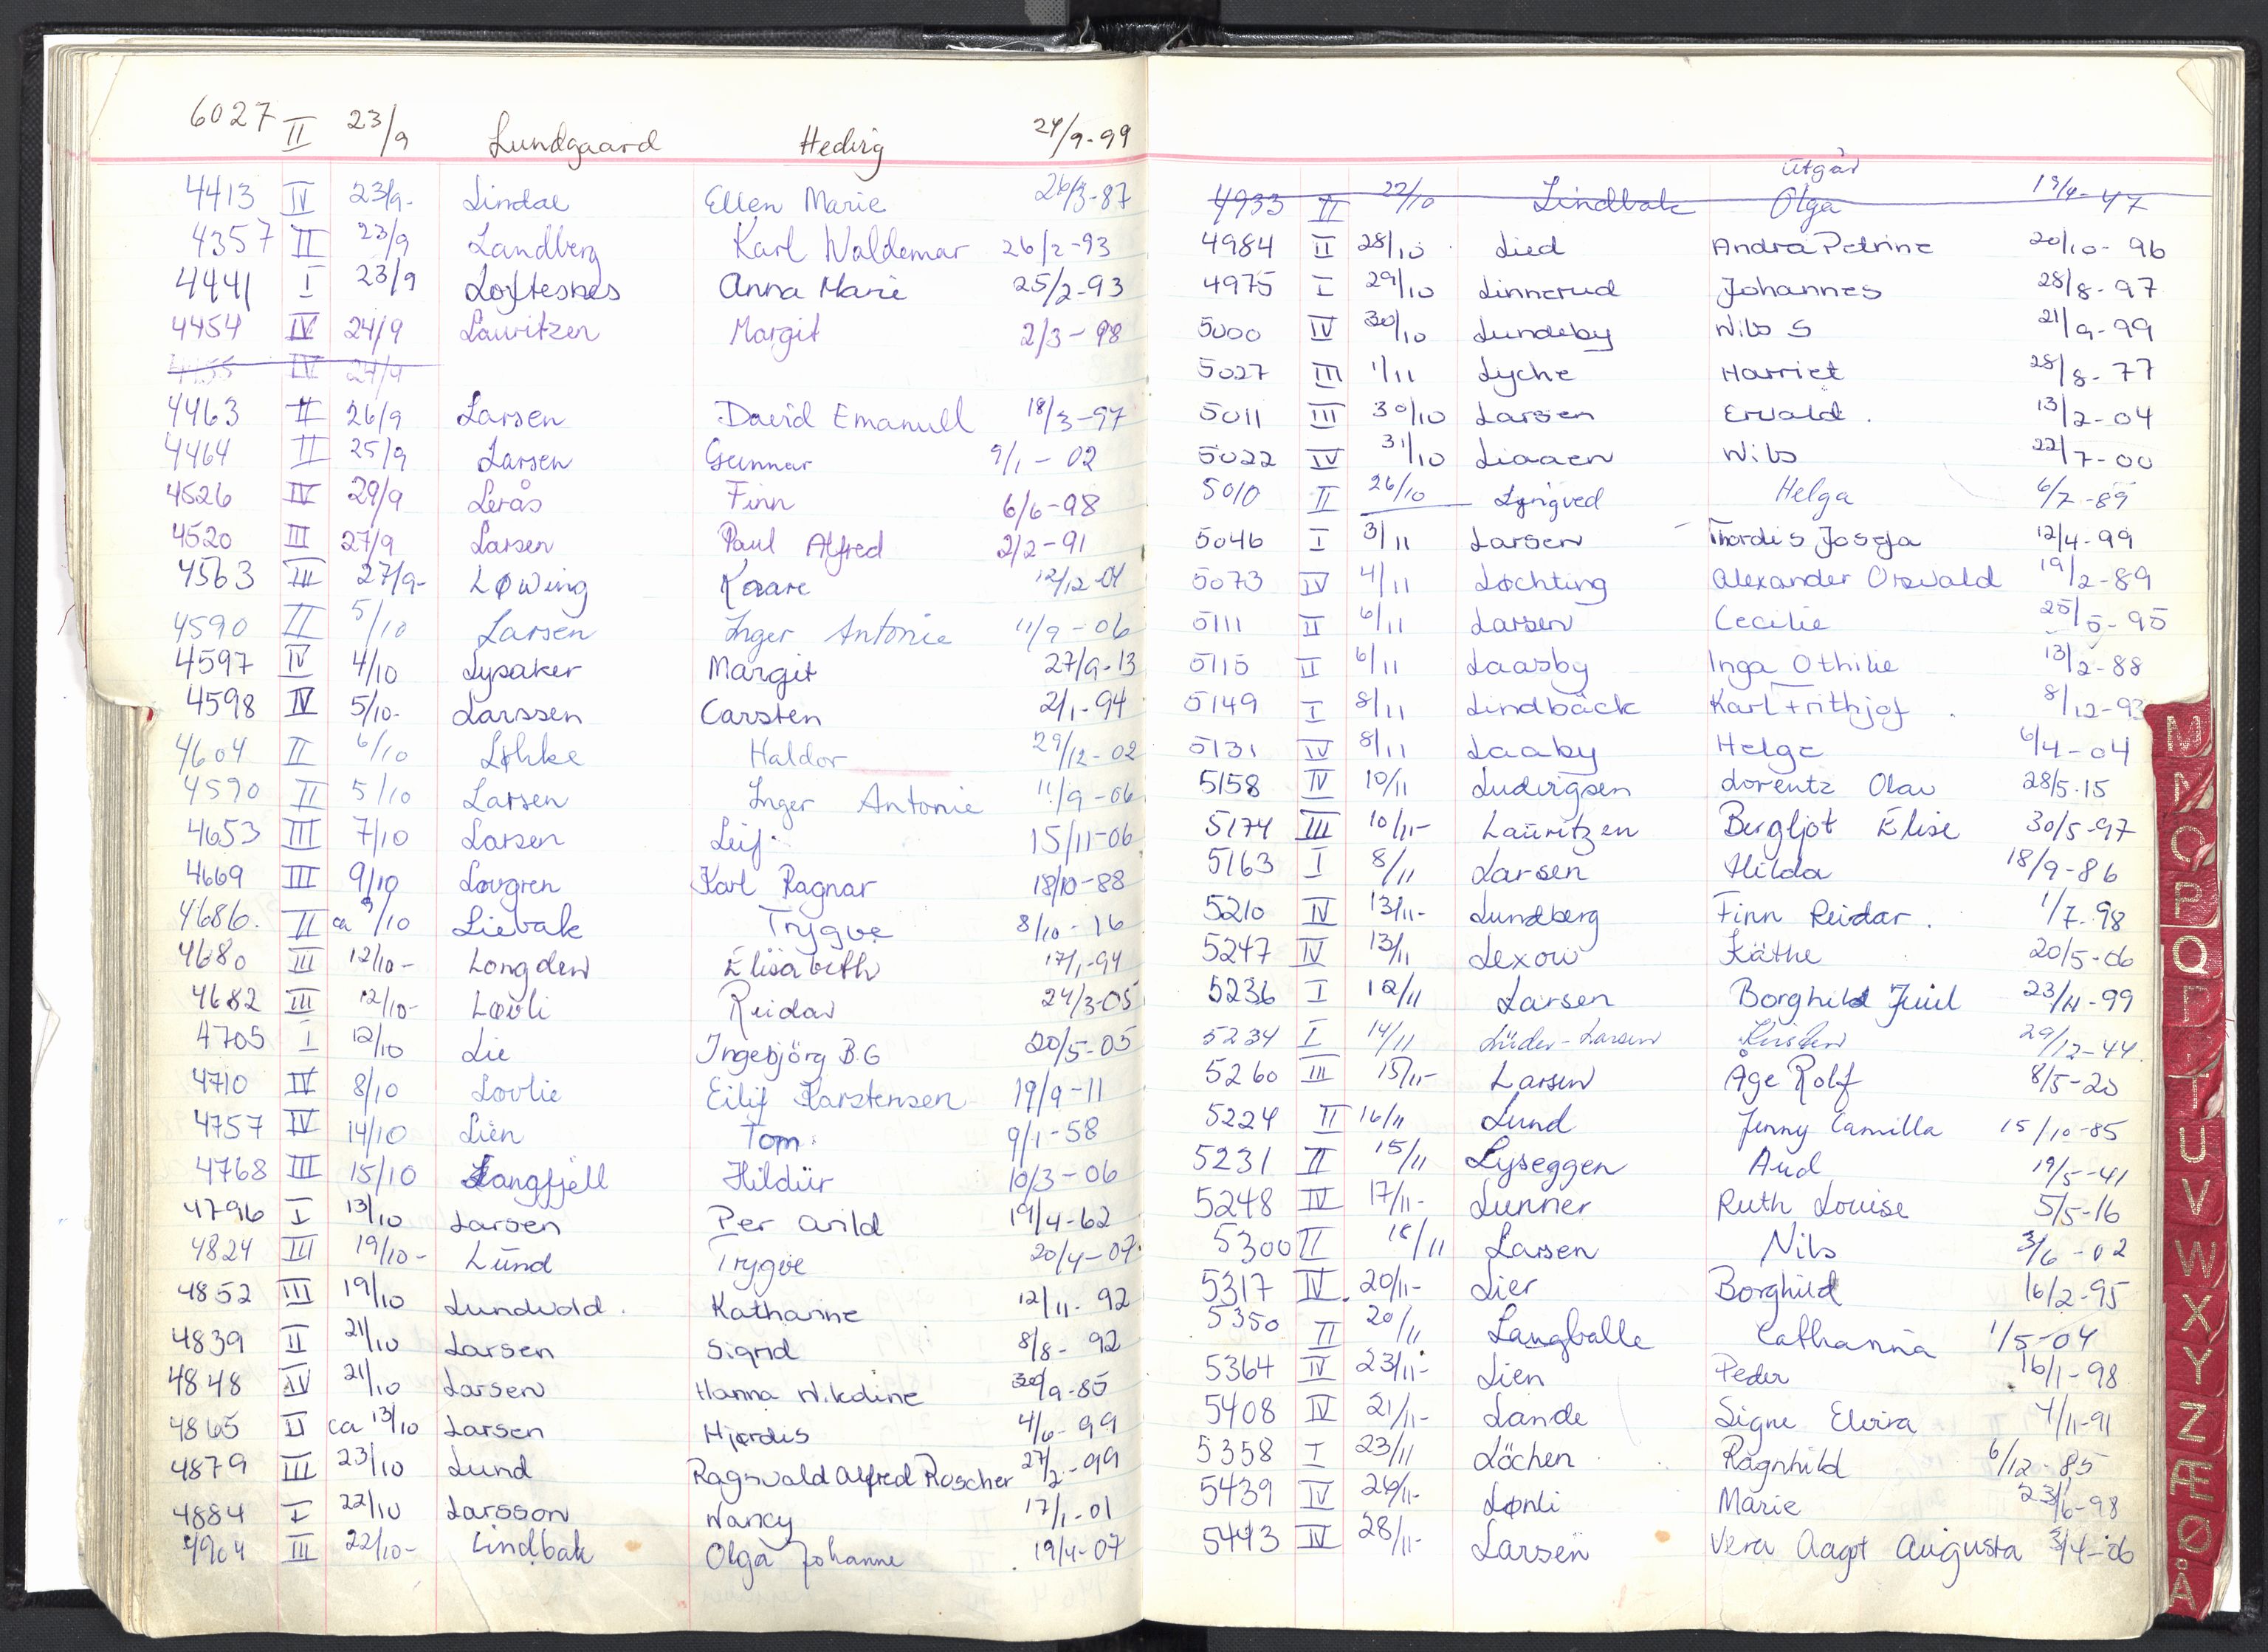 6027 II 23/9 Lundgaard Hedvig 24/9-99
4413 IV 23/9- Lindal Ellen Marie 26/3-87
4357 II 23/9 Landberg Karl Waldemar 26/2-93
4441 I 23/9 Loftesnes Anna Marie 25/2-93
4454 IV 24/9 Lauritzen Margit 2/3-98
4455 IV 24/9
4463 II 26/9 Larsen David Emanuell 18/3-97
4464 II 25/9 Larsen Gunnar 9/1-02
4526 IV 29/9 Lerås Finn 6/6-98
4520 III 27/9 Larsen Paul Alfred 2/2-91
4563 III 27/9- Løwing Kaare 12/12-01
4590 II 5/10 Larsen Inger Antonie 11/9-06
4597 IV 4/10 Lysaker Margit 27/9-13
4598 IV 5/10- Larssen Carsten 2/1-94
4604 II 6/10 Løhke Haldor 29/12-02
4590 II 5/10 Larsen Inger Antonie 11/9-06
4653 III 7/10 Larsen Leif 15/11-06
4669 III 9/10 Lovgren Karl Ragnar 18/10-88
4686. II ca 9/10 Liebak Trygve 8/10-16
4680 III 12/10- Longden Elisabeth 17/1-94
4682 III 12/10- Løvli Reidar 24/3-05
4705 I 12/10 Lie Ingebjörg B.G 20/5-05
4710 IV 8/10 Lovlie Eilif Karstensen 19/9-11
4757 IV 14/10 Lien Tom 9/1-58
4768 III 15/10 Langfjell Hildur 10/3-06
4796 I 13/10 Larsen Per Arild 19/4-62
4824 III 19/10- Lund Trygve 20/4-07
4852 III 19/10 Lundvold. Katharine 12/11-92
4839 II 21/10 Larsen Sigrid 8/8-92
4848 IV 21/10 Larsen Hanna Nikoline 30/9-85
4865 II ca 13/10 Larsen Hjørdis 4/6-99
4879 III 23/10 Lund Ragnvald Alfred Roscher 27/2-99
4884 I 22/10 Larsson Nancy 17/1-01
4904 III 22/10- Lindbak Olga Johanne 19/4-07
utgår
4933 II 22/10 Lindbak Olga 19/4-47
4984 II 28/10 Lied Andra Petrine 20/10-96
4975 I 29/10 Linnerud Johannes 28/8-97
5000 IV 30/10 Lundeby Nils S 21/9-99
5027 III 1/11 Lyche Harriet 28/8-77
5011 III 30/10 Larsen Ervald. 13/2-04
5022 IV 31/10 Liaaen Nils 22/7-00
5010 II 26/10 Lyngved Helga 6/7-89
5046 I 3/11 Larsen Thordis Josefa 12/4-99
5073 IV 4/11 Løchting Alexander Oswald 19/2-89
5111 II 6/11 Larsen Cecilie 25/5-95
5115 II 6/11 Laasby Inga Othilie 13/2-88
5149 I 8/11 Lindbäck Karl Frithjof 8/12-93
5131 IV 8/11 Laaby Helge 6/4-04
5158 IV 10/11 Ludvigsen Lorentz Olav 28/5.15
5174 III 10/11- Lauritzen Bergljot Elise 30/5-97
5163 I 8/11 Larsen Hilda 18/9-86
5210 IV 13/11- Lundberg Finn Reidar. 1/7-98
5247 IV 13/11 Lexow Käthe 20/5-06
5236 I 12/11 Larsen Borghild Juul 23/11-99
5234 I 14/11 Lüder-Larsen Kirsten 29/12-44
5260 III 15/11- Larsen Åge Rolf 8/5-20
5224 II 16/11 Lund Jenny Camilla 15/10-85
5231 II 15/11 Lyseggen Aud 19/5-41
5248 IV 17/11- Lunner Ruth Louise 5/5-16
5300 II 18/11 Larsen Nils 3/6-02
5317 IV 20/11- Lier Borghild 16/2-95
5350 II 20/11 Langballe Catharina 1/5-04
5364 IV 23/11- Lien Peder 16/1-98
5408 IV 21/11- Lande Signe Elvira 4/11-91
5358 I 23/11 Löchen Ragnhild 6/12-85
5439 IV 26/11- Lønli Marie 23/6-98
5493 IV 28/11- Larsen Vera Aagot Augusta 3/4-06
M
N
O
P
Q
R
T
U
V
W
X
Y
Z
Æ
Ø
Å